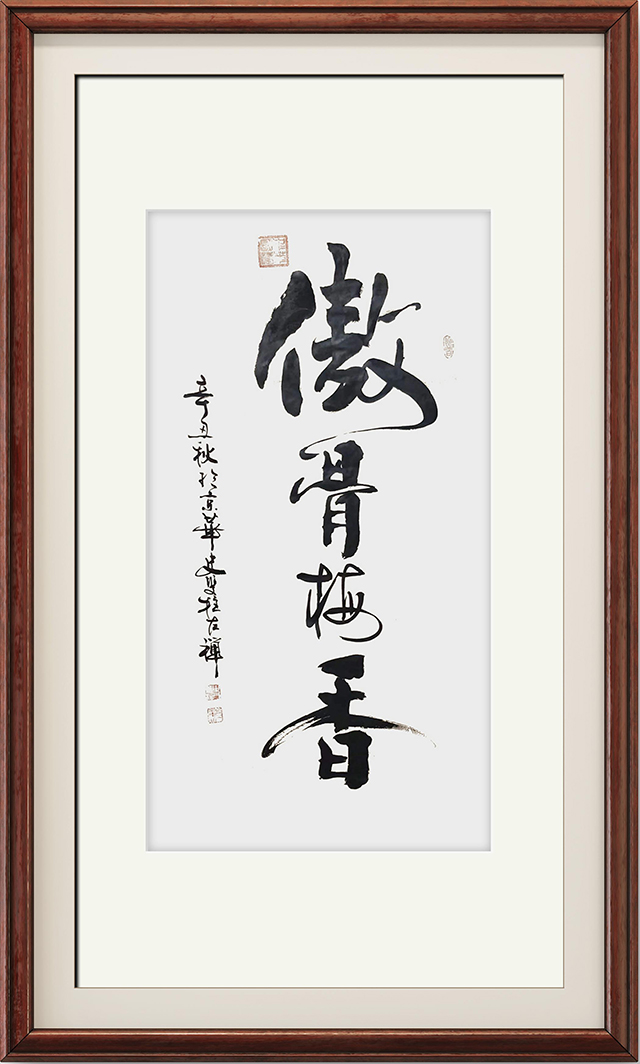 傲骨梅香
辛丑秋於京華史雙拴左禪